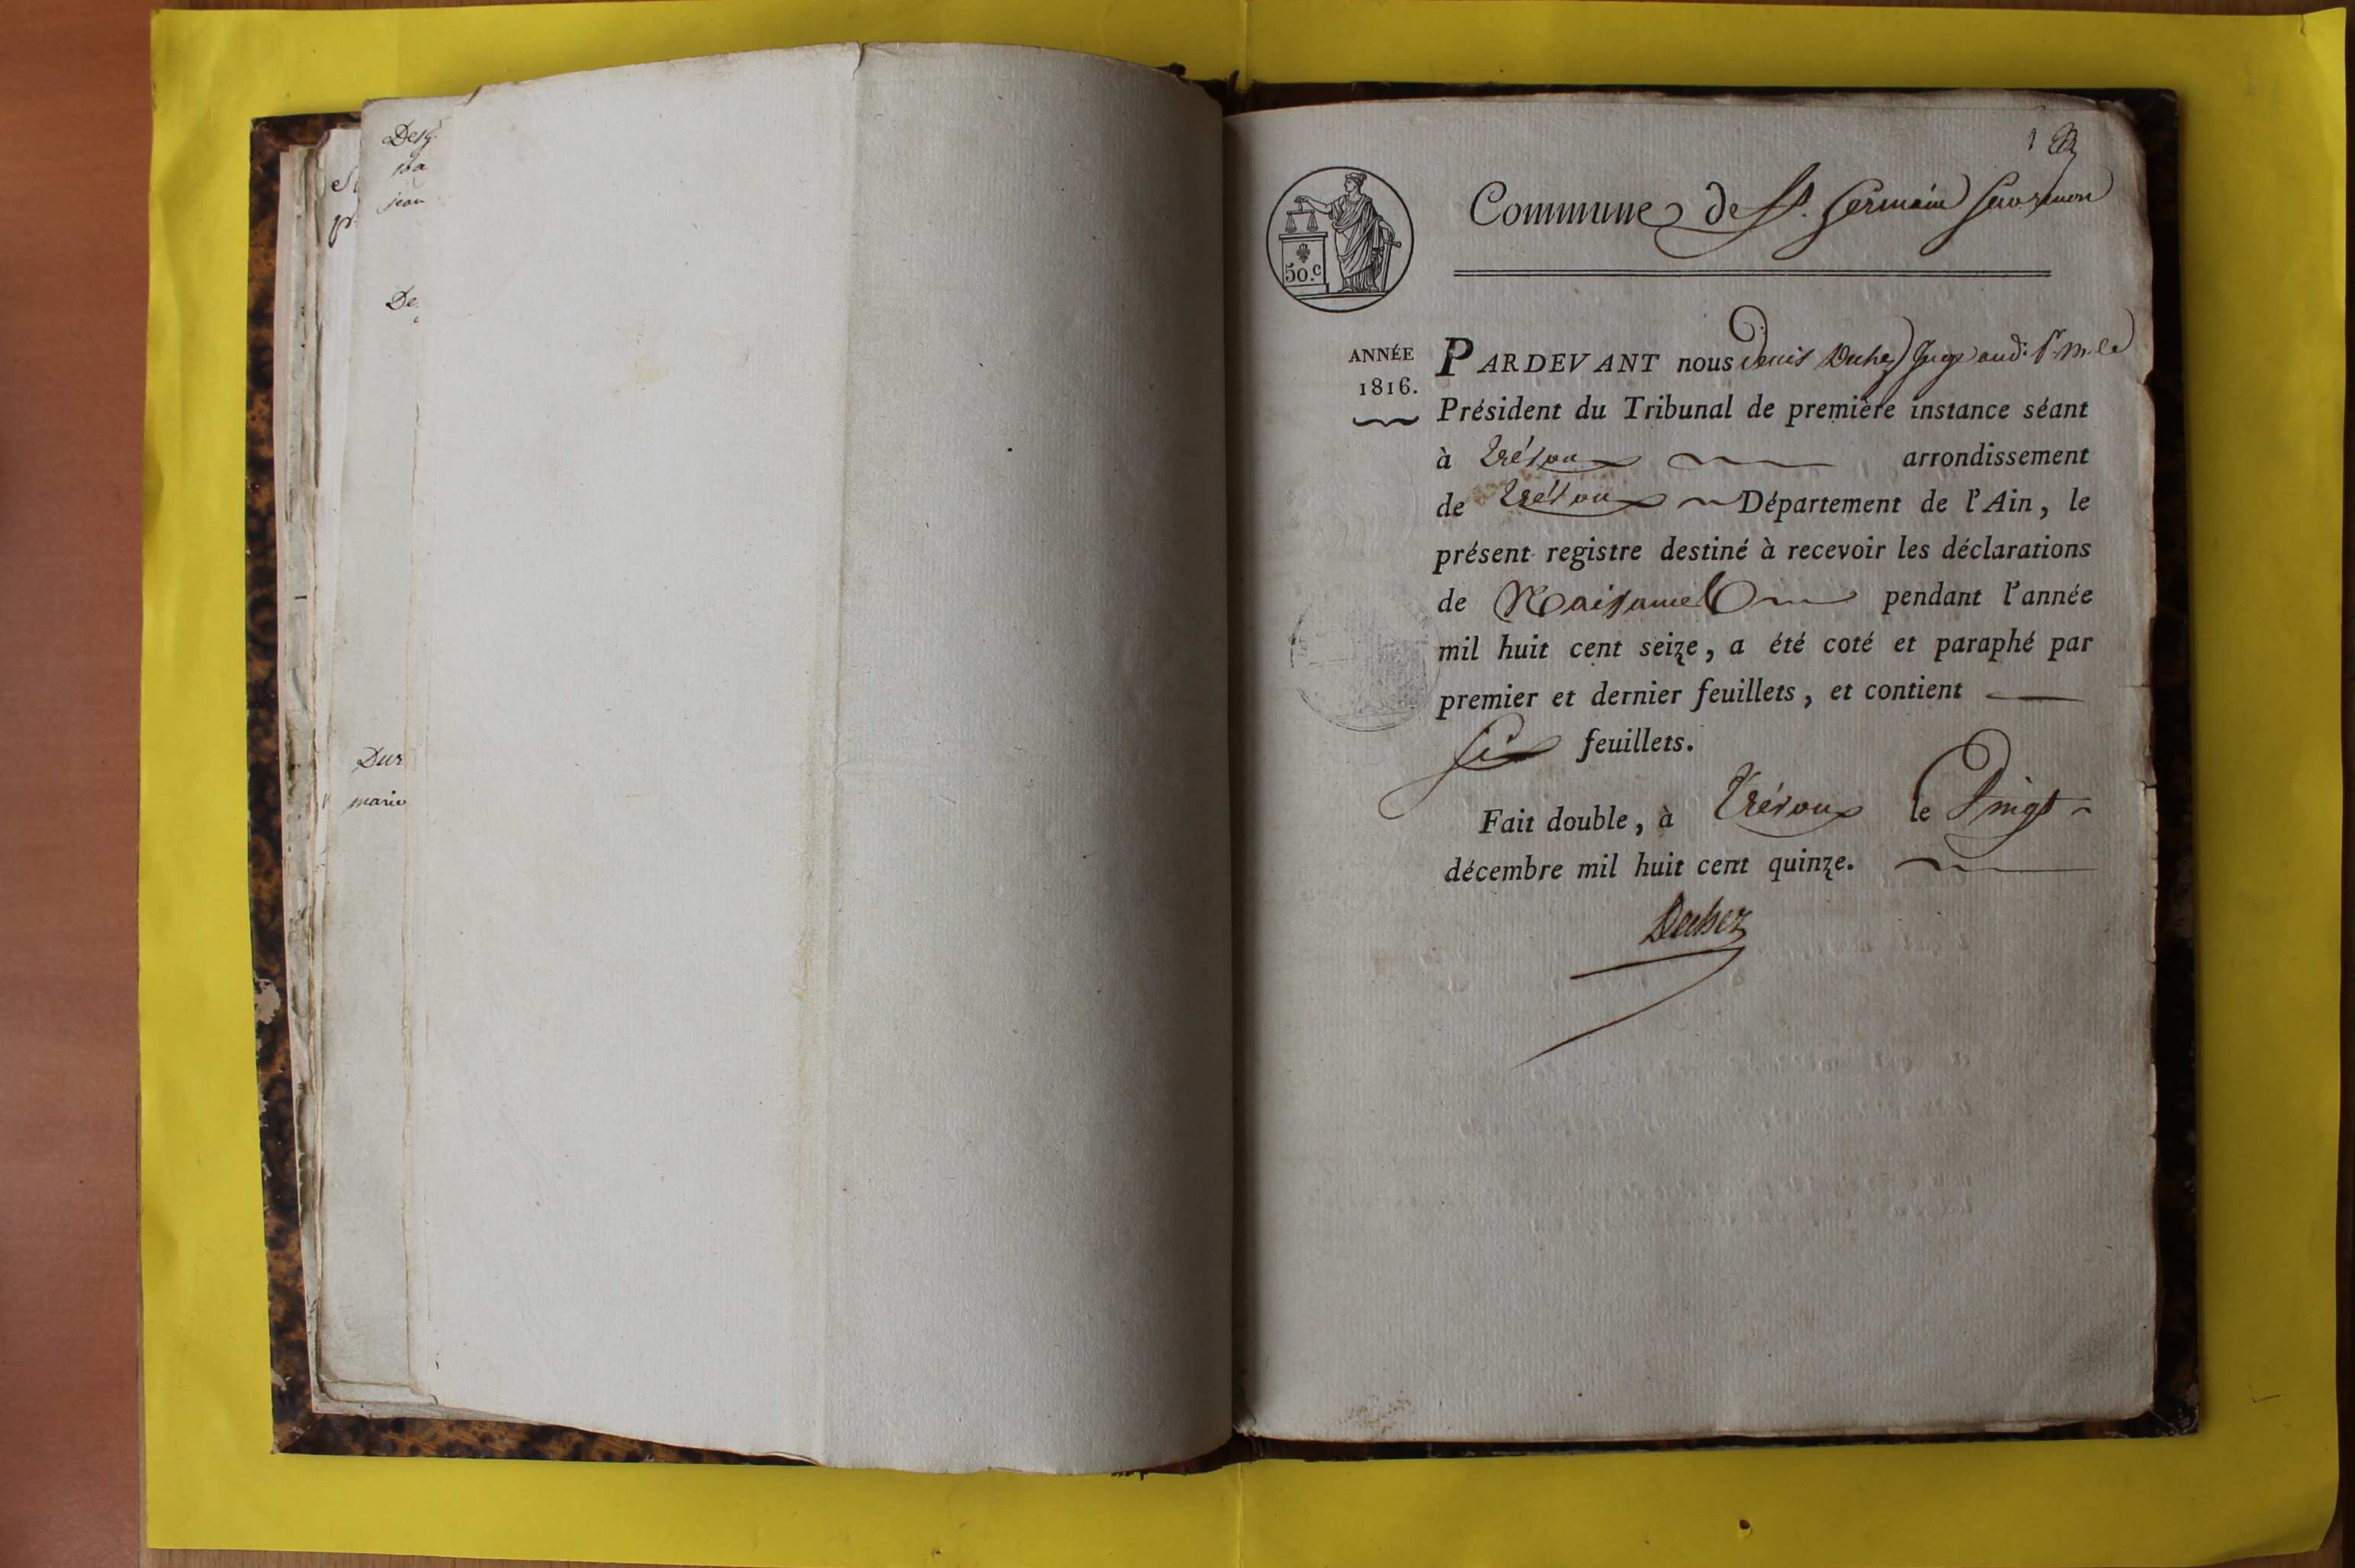 Desg
ma
jean
De
Dur
marie
1
Commune de St. Germain sur renon
50.c
ANNÉE
1816.
PARDEVANT nous Denis Duhez Juge aud. pr. M. le
Président du Tribunal de première instance séant
à Trévoux arrondissement
de Trévoux Département de l'Ain, le
présent registre destiné à recevoir les déclarations
de Naissance pendant l'année
mil huit cent seize, a été coté et paraphé par
premier et dernier feuillets, et contient
six feuillets.
Fait double, à Trévoux le Vingt
décembre mil huit cent quinze.
Duhez